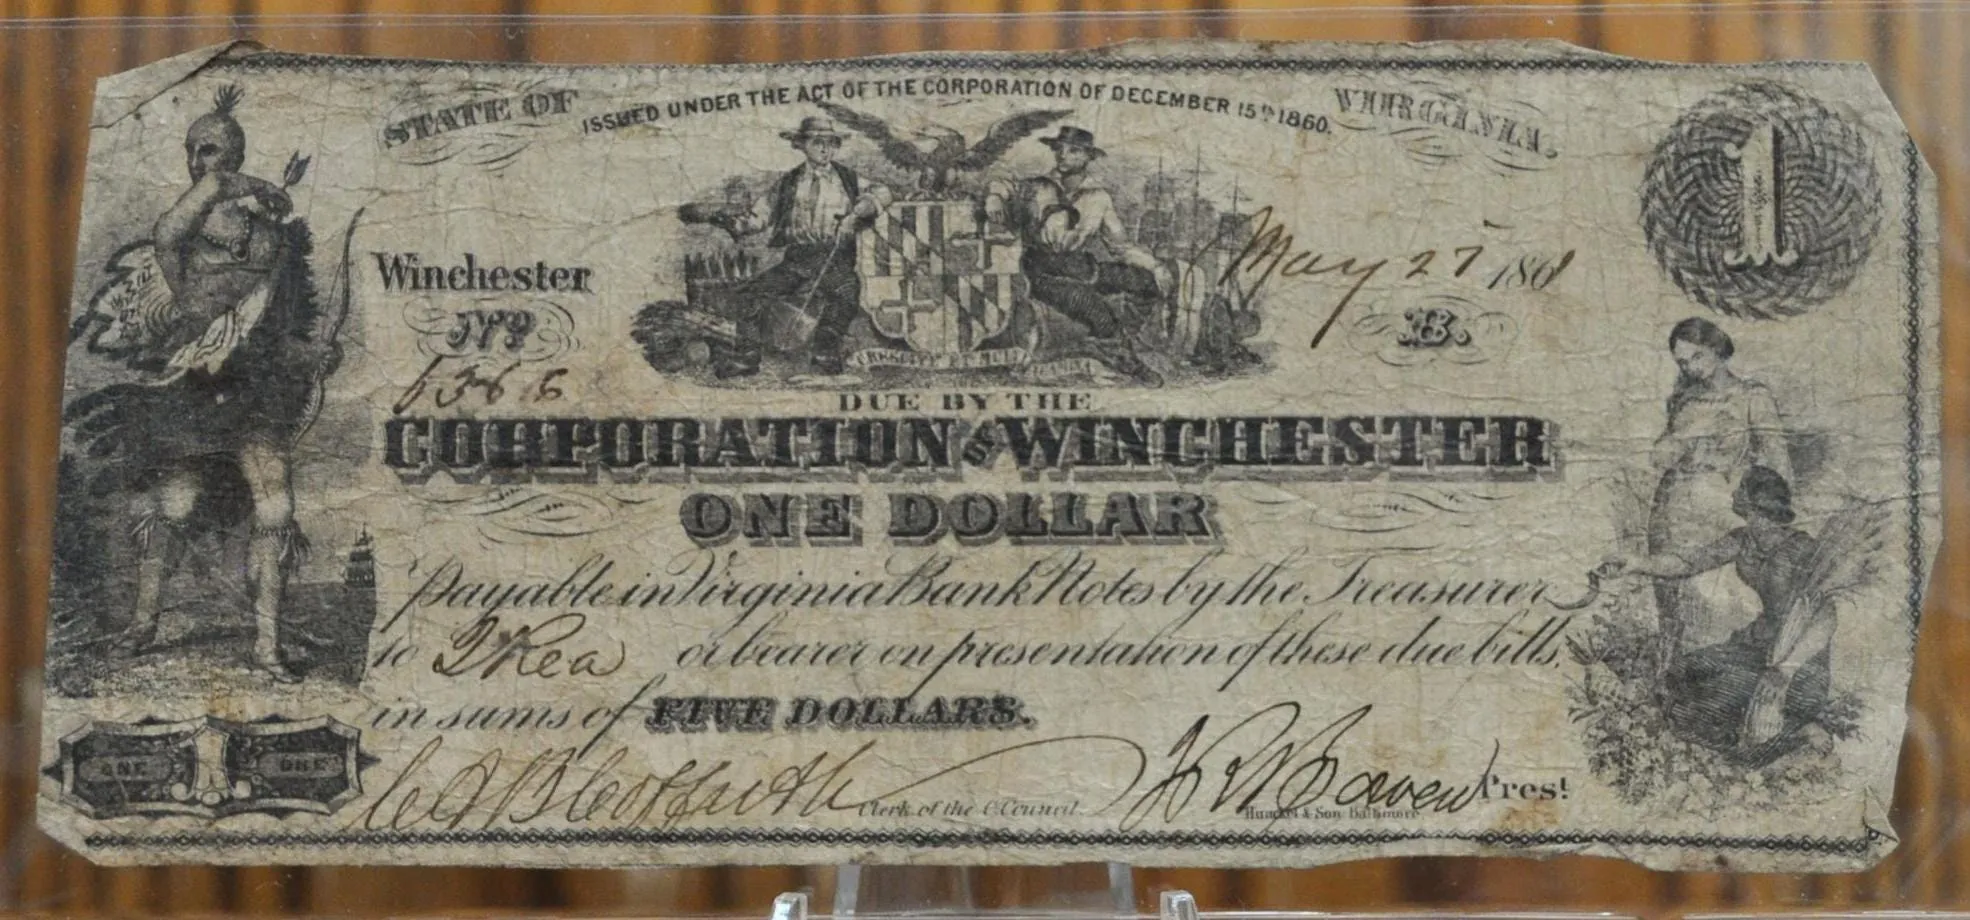 STATE OF ISSUED UNDER THE ACT OF THE CORPORATION OF DECEMBER 15th 1860. VIRGINIA.
1
Winchester May 27 1861
No B.
DUE BY THE
CORPORATION OF WINCHESTER
ONE DOLLAR
Payable in Virginia Bank Notes by the Treasurer
to or bearer on presentation of these due bills,
in sums of FIVE DOLLARS.
ONE 1 ONE
Clerk of the C. Council. Prest
& Son Baltimore